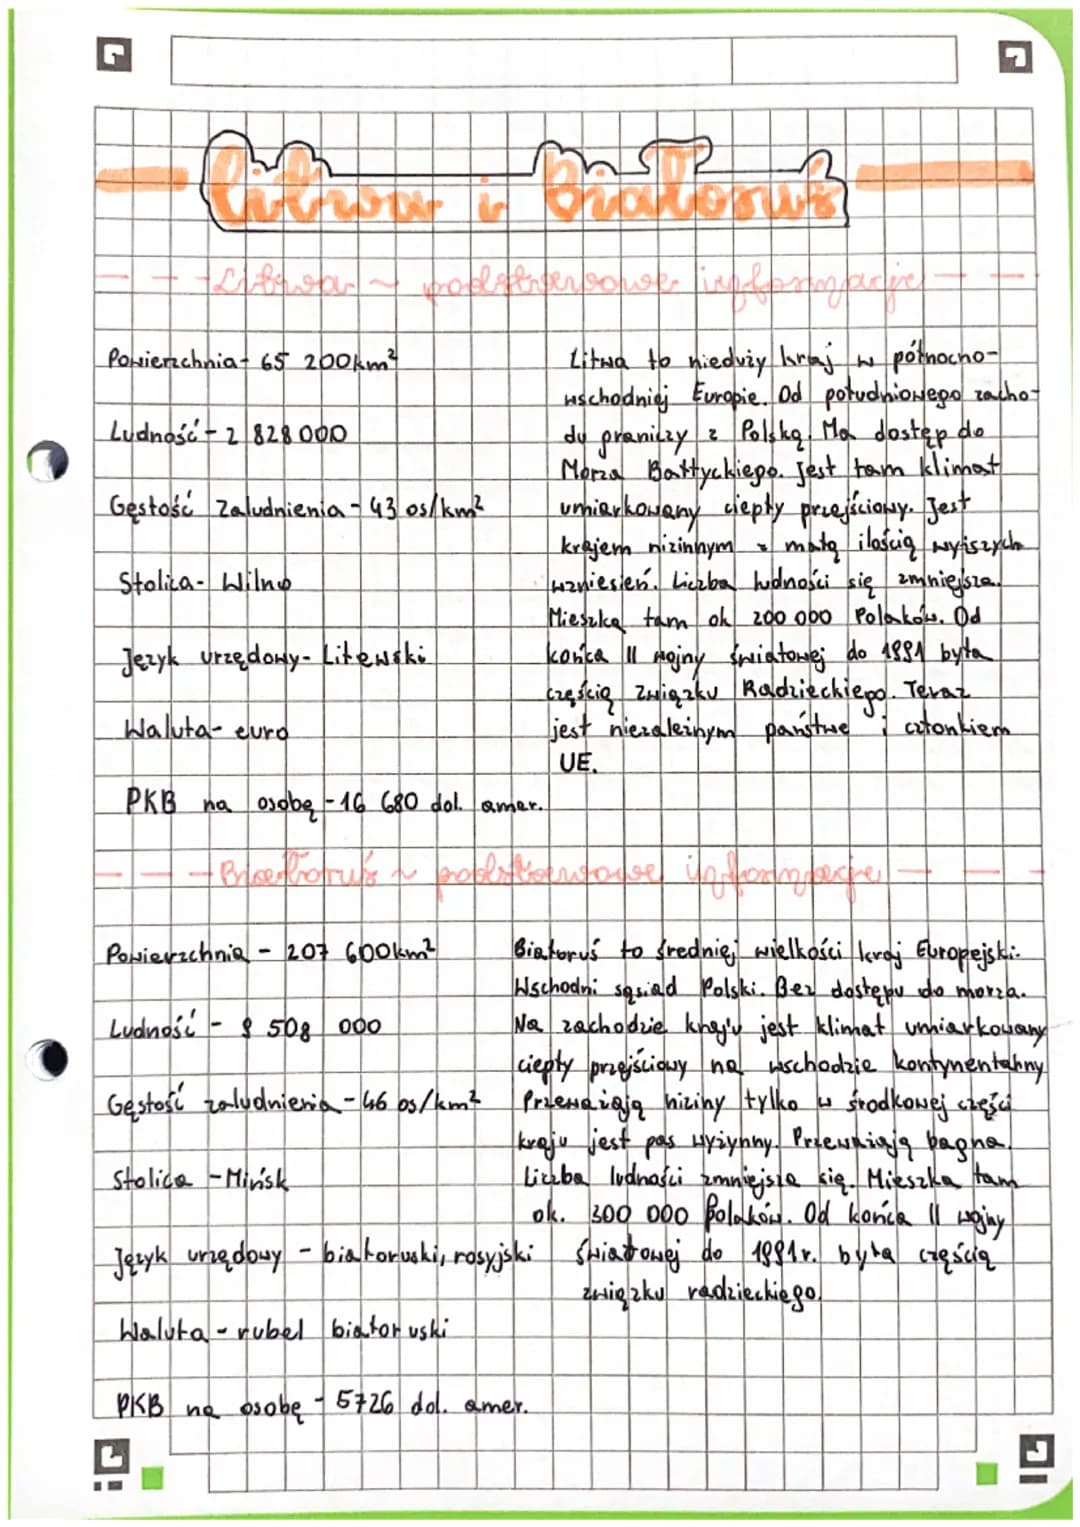 Litwa i Białoruś
Litwa ~ podstawowe informacje
Powierzchnia - 65 200 km²
Ludność - 2 828 000
Gęstość Zaludnienia - 43 os/km²
Stolica - Wilno
Język urzędowy - Litewski
Waluta - euro
PKB na osobę - 16 680 dol. amer.
Litwa to nieduży kraj w północno-
wschodniej Europie. Od południowego zacho-
du graniczy z Polską. Ma dostęp do
Morza Bałtyckiego. Jest tam klimat
umiarkowany ciepły przejściowy. Jest
krajem nizinnym z małą ilością wyższych
wzniesień. Liczba ludności się zmniejsza.
Mieszka tam ok 200 000 Polaków. Od
końca II wojny światowej do 1991 była
częścią Związku Radzieckiego. Teraz
jest niezależnym państwe i członkiem
UE.
Białoruś ~ podstawowe informacje
Powierzchnia - 207 600 km²
Ludność - 9 508 000
Gęstość zaludnienia - 46 os/km²
Stolica - Mińsk
Język urzędowy - białoruski, rosyjski
Waluta - rubel białoruski
PKB na osobę - 5726 dol. amer.
Białoruś to średniej wielkości kraj Europejski.
Wschodni sąsiad Polski. Bez dostępu do morza.
Na zachodzie kraju jest klimat umiarkowany
ciepły przejściowy na wschodzie kontynentalny
Przeważają niziny tylko w środkowej części
kraju jest pas wyżynny. Przeważają bagna.
Liczba ludności zmniejsza się. Mieszka tam
ok. 300 000 Polaków. Od końca II wojny
światowej do 1991r. była częścią
związku radzieckiego.